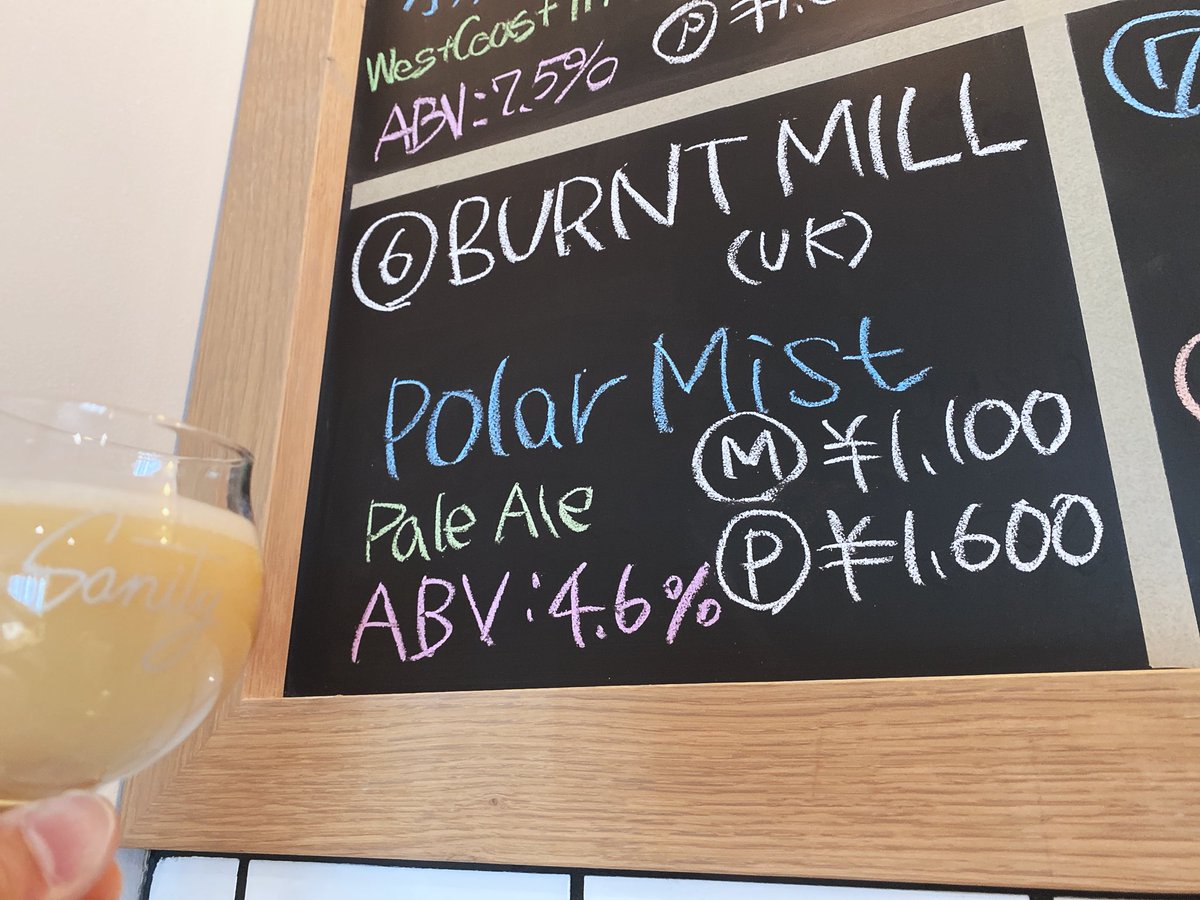 West Coast
ABV:7.5%
Ⓟ
⑥BURNT MILL
(UK)
Polar Mist
Ⓜ ¥1.100
Pale Ale
Ⓟ ¥1.600
ABV:4.6%
Sanity